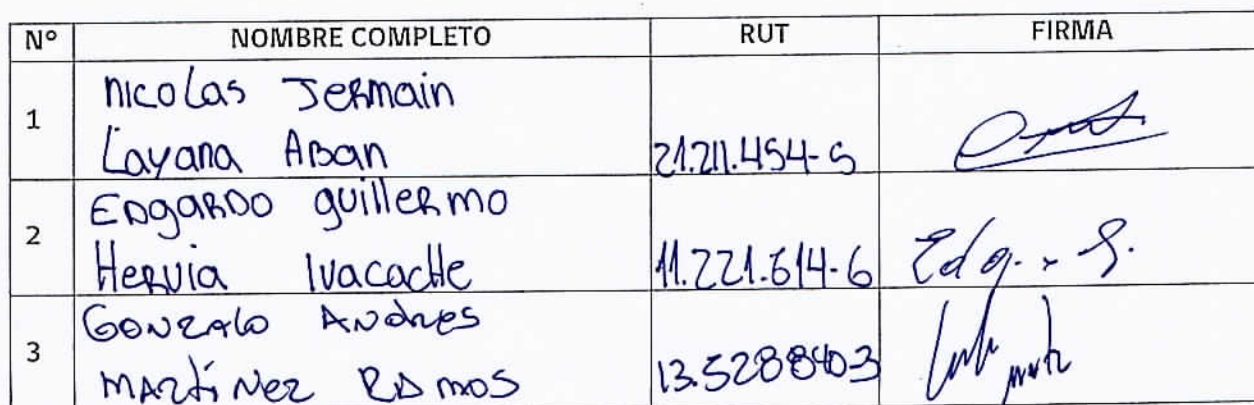 Nº NOMBRE COMPLETO RUT FIRMA
1 Nicolas Jermain
Layana Aban 21.211.454-5
2 Edgardo guillermo
Hervia Ivacache 11.221.614-6
3 Gonzalo Andres
Martinez Ramos 13.528840-3